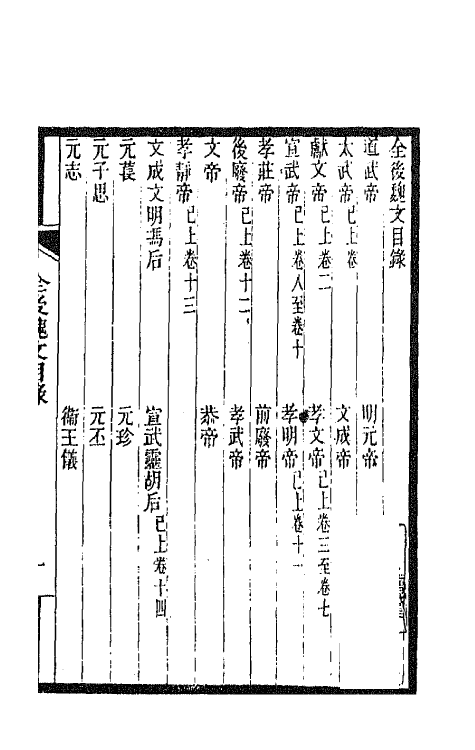 全後魏文目錄
道武帝 明元帝
太武帝已上卷一 文成帝
獻文帝已上卷二 孝文帝已上卷三至卷七
宣武帝已上卷八至卷十 孝明帝已上卷十一
孝莊帝 前廢帝
後廢帝已上卷十二 孝武帝
文帝 恭帝
孝靜帝已上卷十三
文成文明馮后 宣武靈胡后已上卷十四
元萇 元珍
元子思 元丕
元志 衞王儀
全後魏文目錄 一